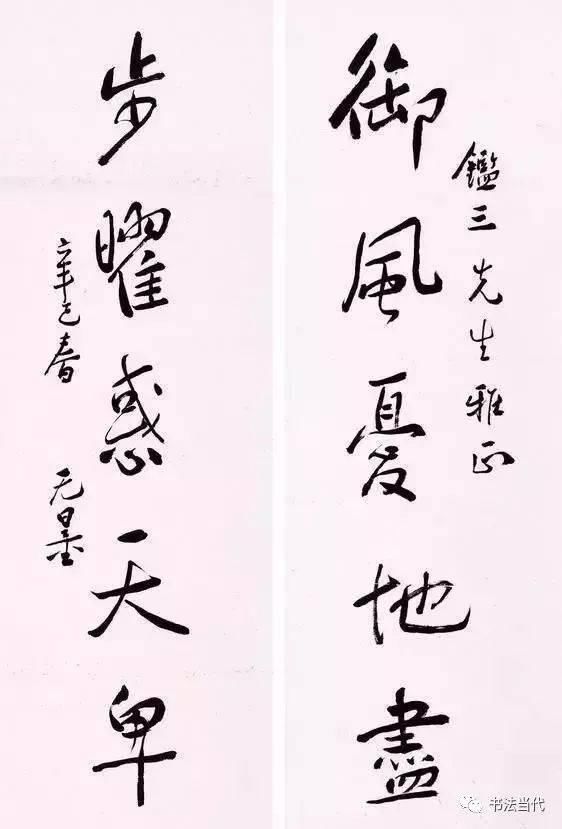 鑑三先生雅正
御風憂地盡
步曜惑天卑
辛巳春 无量
书法当代